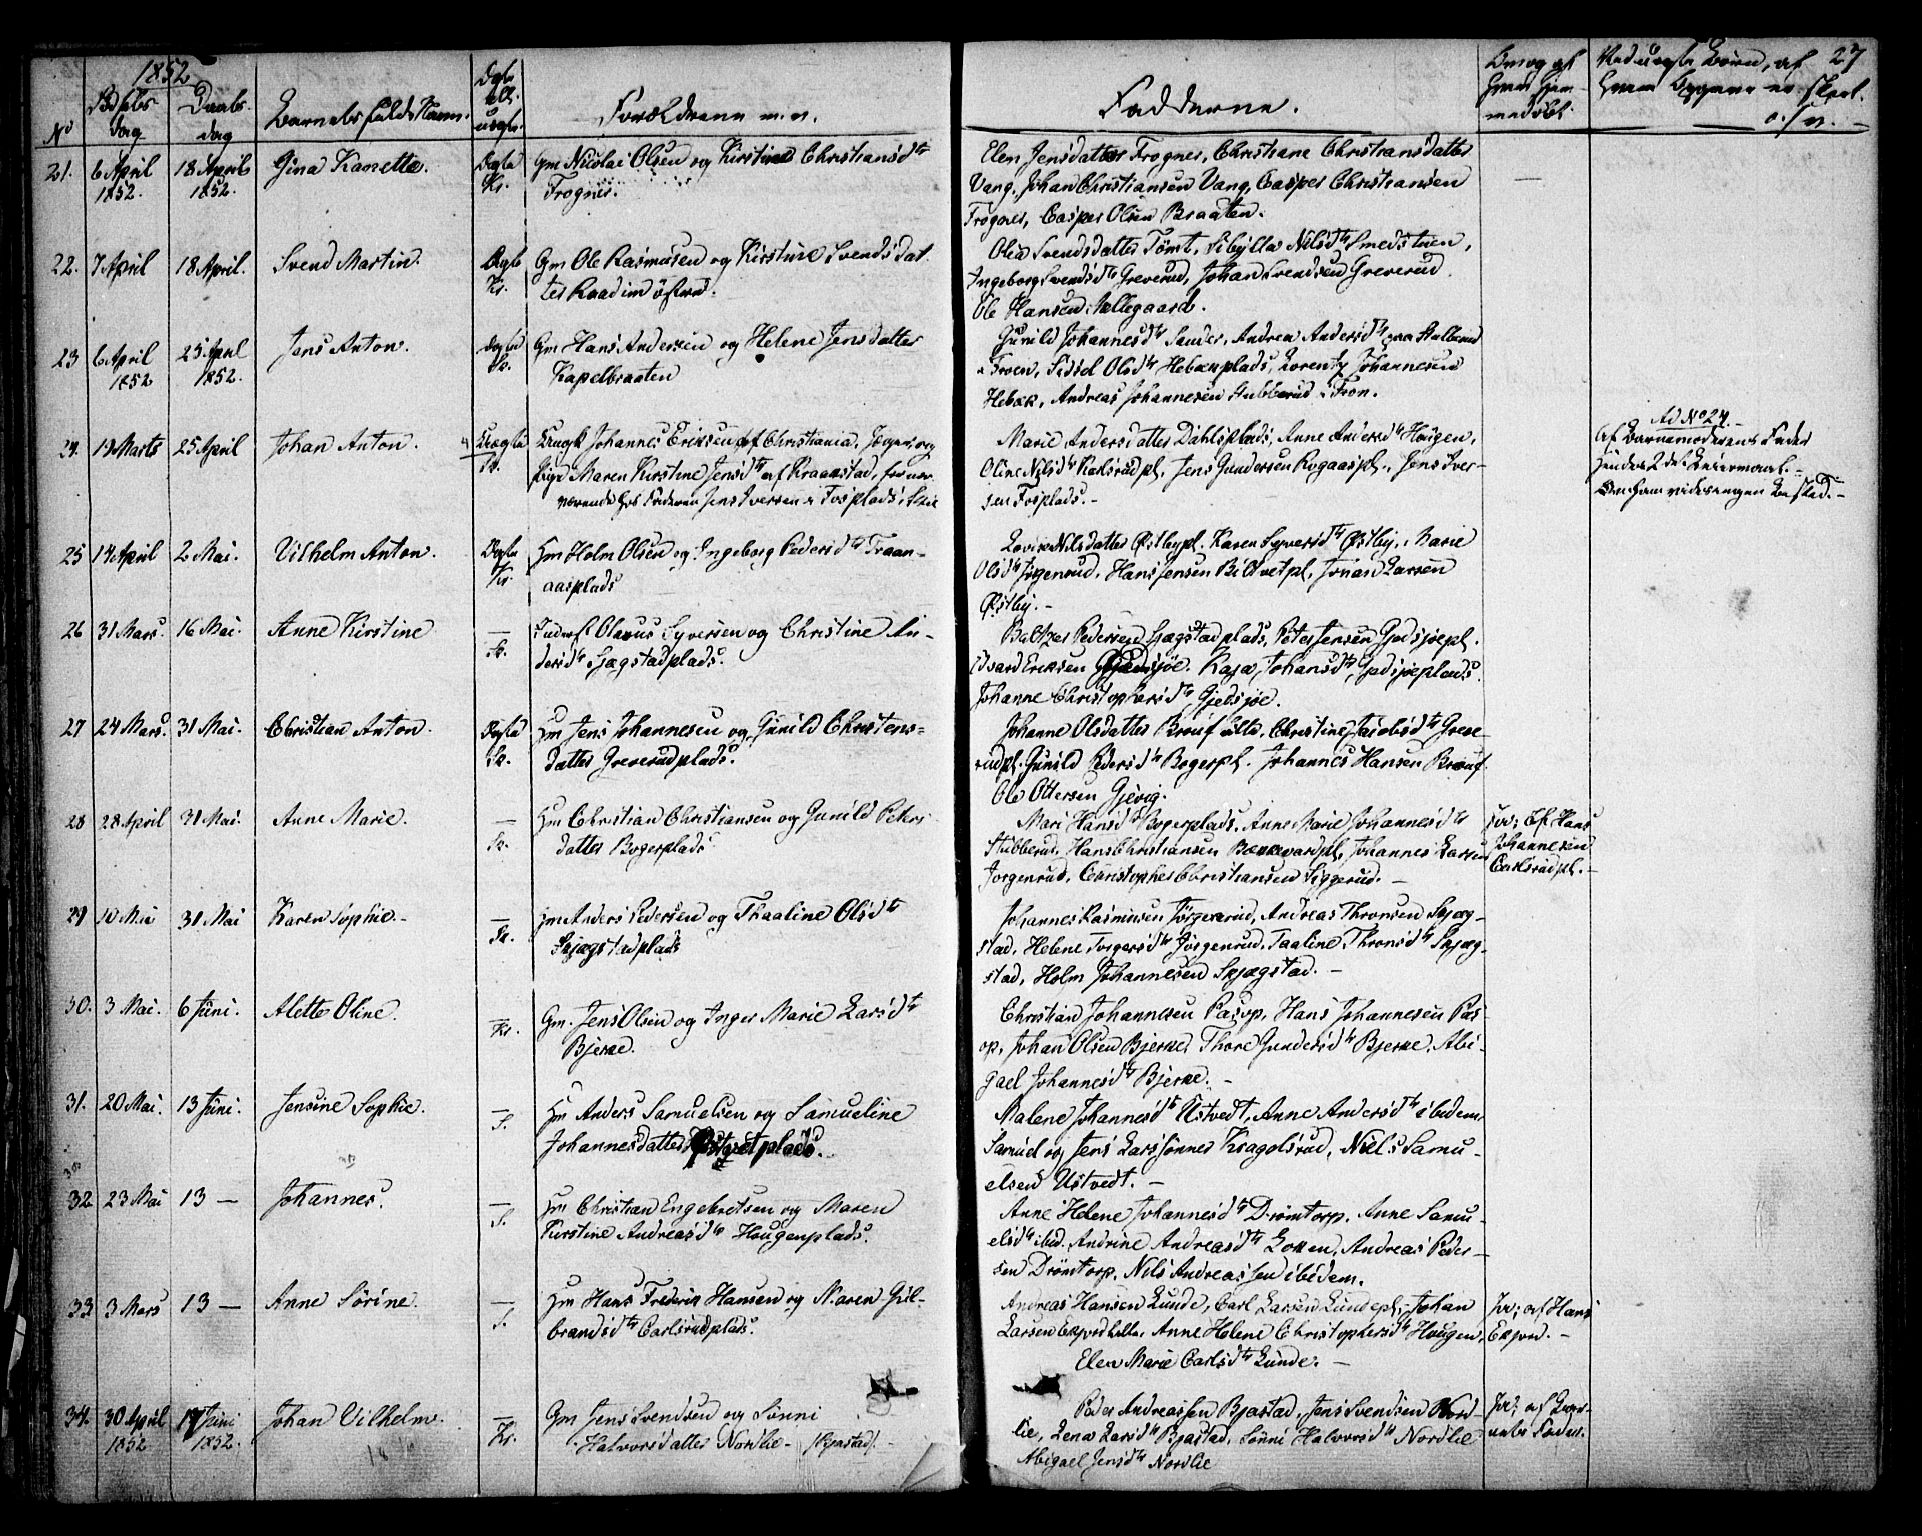 1852
No
Fødsels dag
Daabs dag
Barnets fulde Navn.
Ægte ell. uægte.
Forældrene m. v.
Fadderne.
Besøg af Hjemmedøbt.
Ved uægte Børn, af
27
21. 6 April 1852. 18 April 1852. Gina Kanette. Ægte Kr. Gm Nicolai Olsen og Kirstine Christiansdtr
Frogner.
Elen Jensdatter Frogner, Christiane Christiansdatter
Vang, Johan Christiansen Vang, Casper Christiansen
Frogner, Casper Olsen Braaten.
22. 7 April 18 April. Svend Martin. Ægte Kr. Gm Ole Rasmusen og Kirstine Svendsdat
ter
Olea Svendsdatter Tømt, Sibylla Nilsdtr Smedstuen,
Ingeborg Svendsdtr Greverud, Johan Svendsen Greverud.
Ole Hansen Møllegaard.
23 6 April 1852 25 April 1852. Jens Anton. Ægte Sk. Gm Hans Andersen og Helene Jensdatter
Kapelbraaten
Gunild Johannesdtr Sander, Andrea Andersdtr
Froen, Sidsel Olsdtr Hebækplads, Lorentz Johannesen
Hebæk, Andreas Johannesen Stubberud i Fron.
24. 19 Marts 25 April Johan Anton. Uægte Sk. Ungk Johannes Eriksen af Christiania, Jæger, og
Pige Maren Kirstine Jensdtr af Kraakstad, for nær
værende hos Faderen Jens Iversen i Fosplads i Skie
Marie Andersdatter Dahlsplads, Anne Andersdtr Haugen,
Oline Nilsdtr Karlsrudpl, Jens Gundersen Rogaaspl., Jens Iver-
sen Fosplads.-
Ad No 24.
af Barnemoderens Fader
hendes 2det Leiermaal.-
25 14 April 2 Mai. Vilhelm Anton. Ægte Kr. Hm Holm Olsen og Ingeborg Pedersdtr Fraan-
aasplads
Lovise Nilsdatter Østbypl. Karen Syversdtr Østby, Marie
Olsdtr Jørgenrud, Hans Jensen Biltvetpl, Johan Larsen
Østby.-
26 31 Mars. 16 Mai. Anne Kirstine - Sk. Inderst Olavus Syversen og Christine An-
dersdtr Skjægstadplads.
Baltzer Pedersen Skjægstadplads, Peter Jensen Gjedsjøepl.
Edvard Eriksen Gjedsjøe. Kaja Johansdtr Gjedsjøeplads.
Johanne Christophersdtr Gjedsjøe.
27 24 Mars. 31 Mai. Christian Anton. Ægte Sk. Hm Jens Johannesen og Gunild Christens-
datter Greverudplads.
Johanne Olsdatter, Christine Jacobsdtr Greve-
rudpl. Gunild Pedersdtr Bøgerpl. Johannes Hansen
Ole Ottersen Gjevig.
28 28 April 31 Mai. Anne Marie. - Sk. Hm Christian Christiansen og Gunild Peters
datter Bøgerplads
Mari Hansdtr Bøgerplads, Anne Marie Johannesdtr
Stubberud, Hans Christiansen Bækkevardpl, Johannes Larsen
Jørgenrud, Christopher Christiansen Siggerud.-
Joe; af Hans
Johannesen
Carlsrudpl.-
29 10 Mai 31 Mai Karen Sophie.- - Sk. Hm Anders Pedersen og Thaaline Olsdtr
Skjægstadplads
Johannes Rasmusen Jørgenrud, Andreas Thronsen Skjæg-
stad, Helene Torgersdtr Jørgenrud, Taaline Thronsdtr Skjæg-
stad, Holm Johannesen Skjægstad.-
30. 3 Mai. 6 Juni. Alette Oline. - Kr. Gm. Jens Olsen og Inger Marie Larsdtr
Bjerke.
Christian Johannesen Pasop, Hans Johannesen Pas-
op, Johan Olsen Bjerke, Thore Gundersdtr Bjerke, Abi-
gael Johannesdtr Bjerke.-
31. 20 Mai. 13 Juni. Jensine Sophie. - S. Hm Anders Samuelsen og Samueline
Johannesdatter Østvetplads.
Malene Johannesdtr Ustvedt, Anne Andersdtr ibidem,
Samuel og Jens Larssønner Kragolsrud, Niels Samu-
elsen Ustvedt.-
32 23 Mai 13 - Johannes. - S. Hm Christian Engebretsen og Maren
Kirstine Andreasdtr Haugenplads.
Anne Helene Johannesdtr Drømtorp, Anne Samu-
elsdtr ibid. Andrine Andreasdtr Lotten, Andreas Peder-
sen Drømtorp, Nils Andreassen ibidem.
33 3 Mars 13 - Anne Sørine. - S. Hm Hans Frederik Hansen og Maren Gul-
brandsdtr Carlsrudplads.
Andreas Hansen Lunde, Carl Larsen Lundepl, Johan
Larsen, Anne Helene Christophersdtr Haugen,
Elen Marie Carlsdtr Lunde.-
af Hans
34. 30 April 1852 17 Juni 1852. Johan Vilhelm. - Kr. Gm Jens Svendsen og Sønni
Halvorsdatter Nordlie- (Bjastad).-
Peder Andreassen Bjastad, Jens Svendsen Nord-
lie, Lena Larsdtr Bjastad, Sønni Halvorsdtr Nordlie
Abigael Jensdtr Nordlie